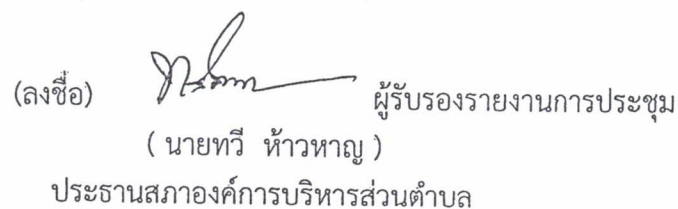 (ลงชื่อ) ผู้รับรองรายงานการประชุม
( นายทวี ห้าวหาญ )
ประธานสภาองค์การบริหารส่วนตำบล